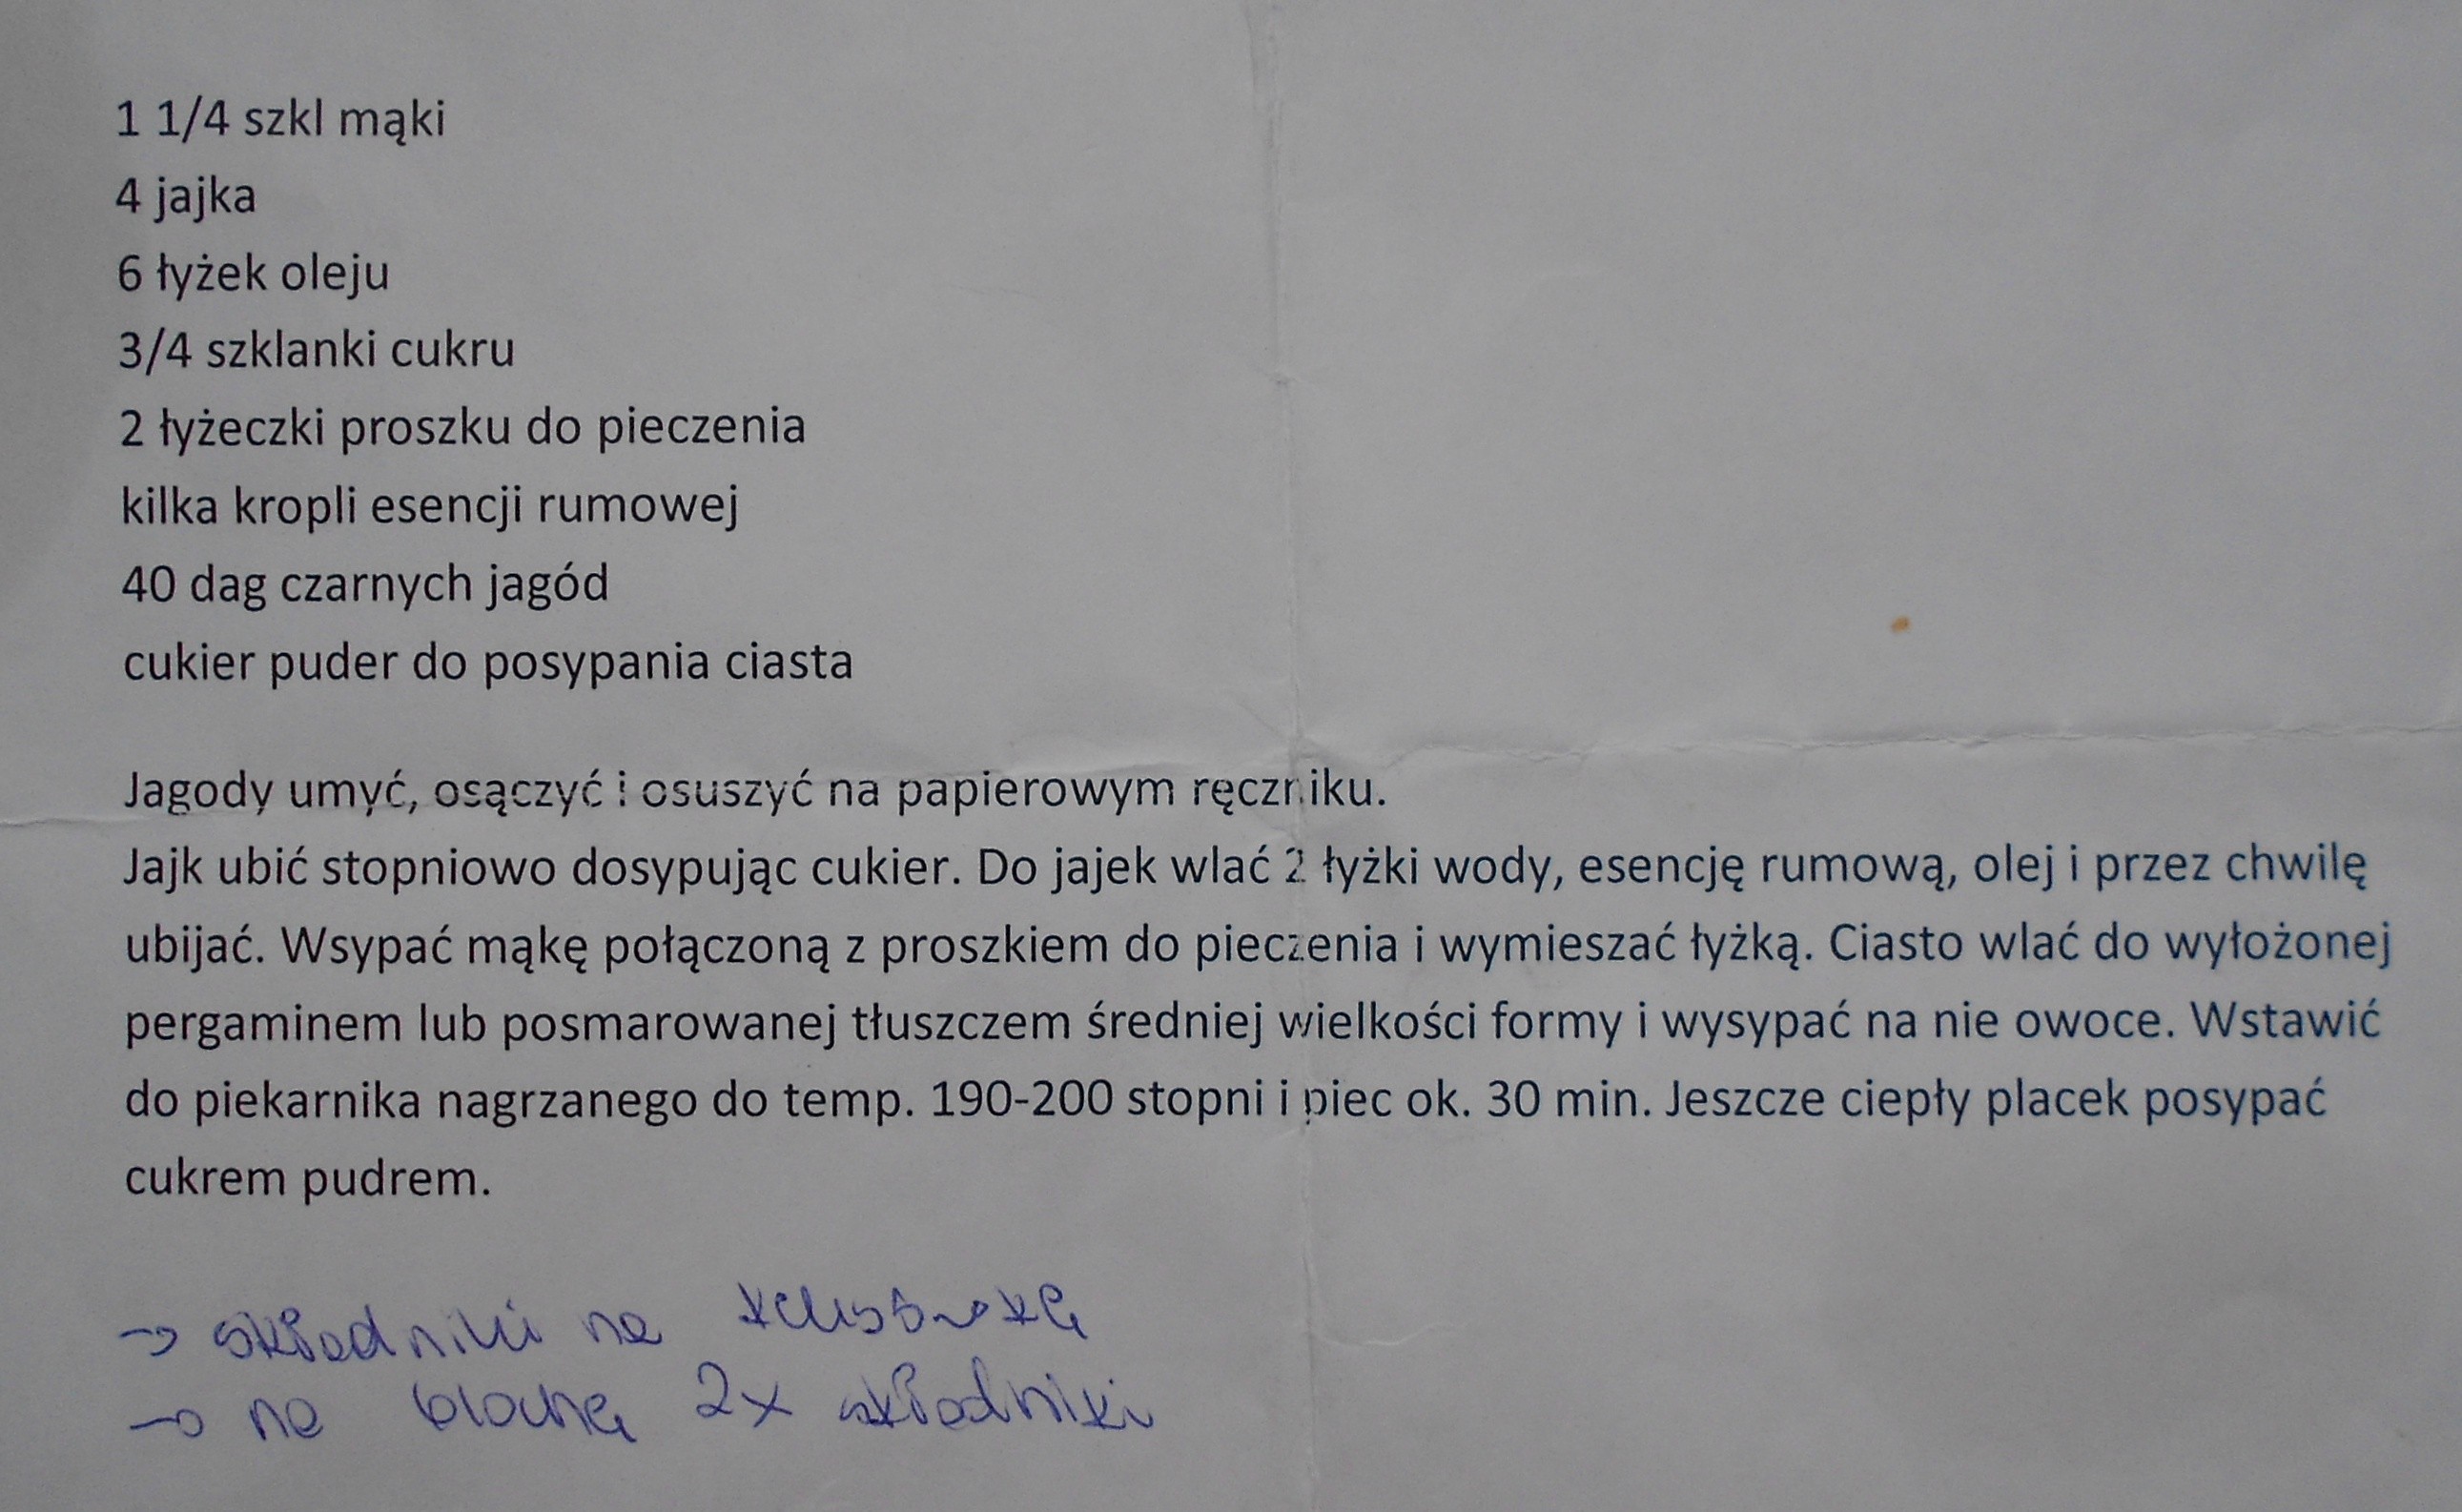 1 1/4 szkl mąki
4 jajka
6 łyżek oleju
3/4 szklanki cukru
2 łyżeczki proszku do pieczenia
kilka kropli esencji rumowej
40 dag czarnych jagód
cukier puder do posypania ciasta
Jagody umyć, osączyć i osuszyć na papierowym ręczniku.
Jajk ubić stopniowo dosypując cukier. Do jajek wlać 2 łyżki wody, esencję rumową, olej i przez chwilę
ubijać. Wsypać mąkę połączoną z proszkiem do pieczenia i wymieszać łyżką. Ciasto wlać do wyłożonej
pergaminem lub posmarowanej tłuszczem średniej wielkości formy i wysypać na nie owoce. Wstawić
do piekarnika nagrzanego do temp. 190-200 stopni i piec ok. 30 min. Jeszcze ciepły placek posypać
cukrem pudrem.
→ składniki na
→ na blachę 2x składniki